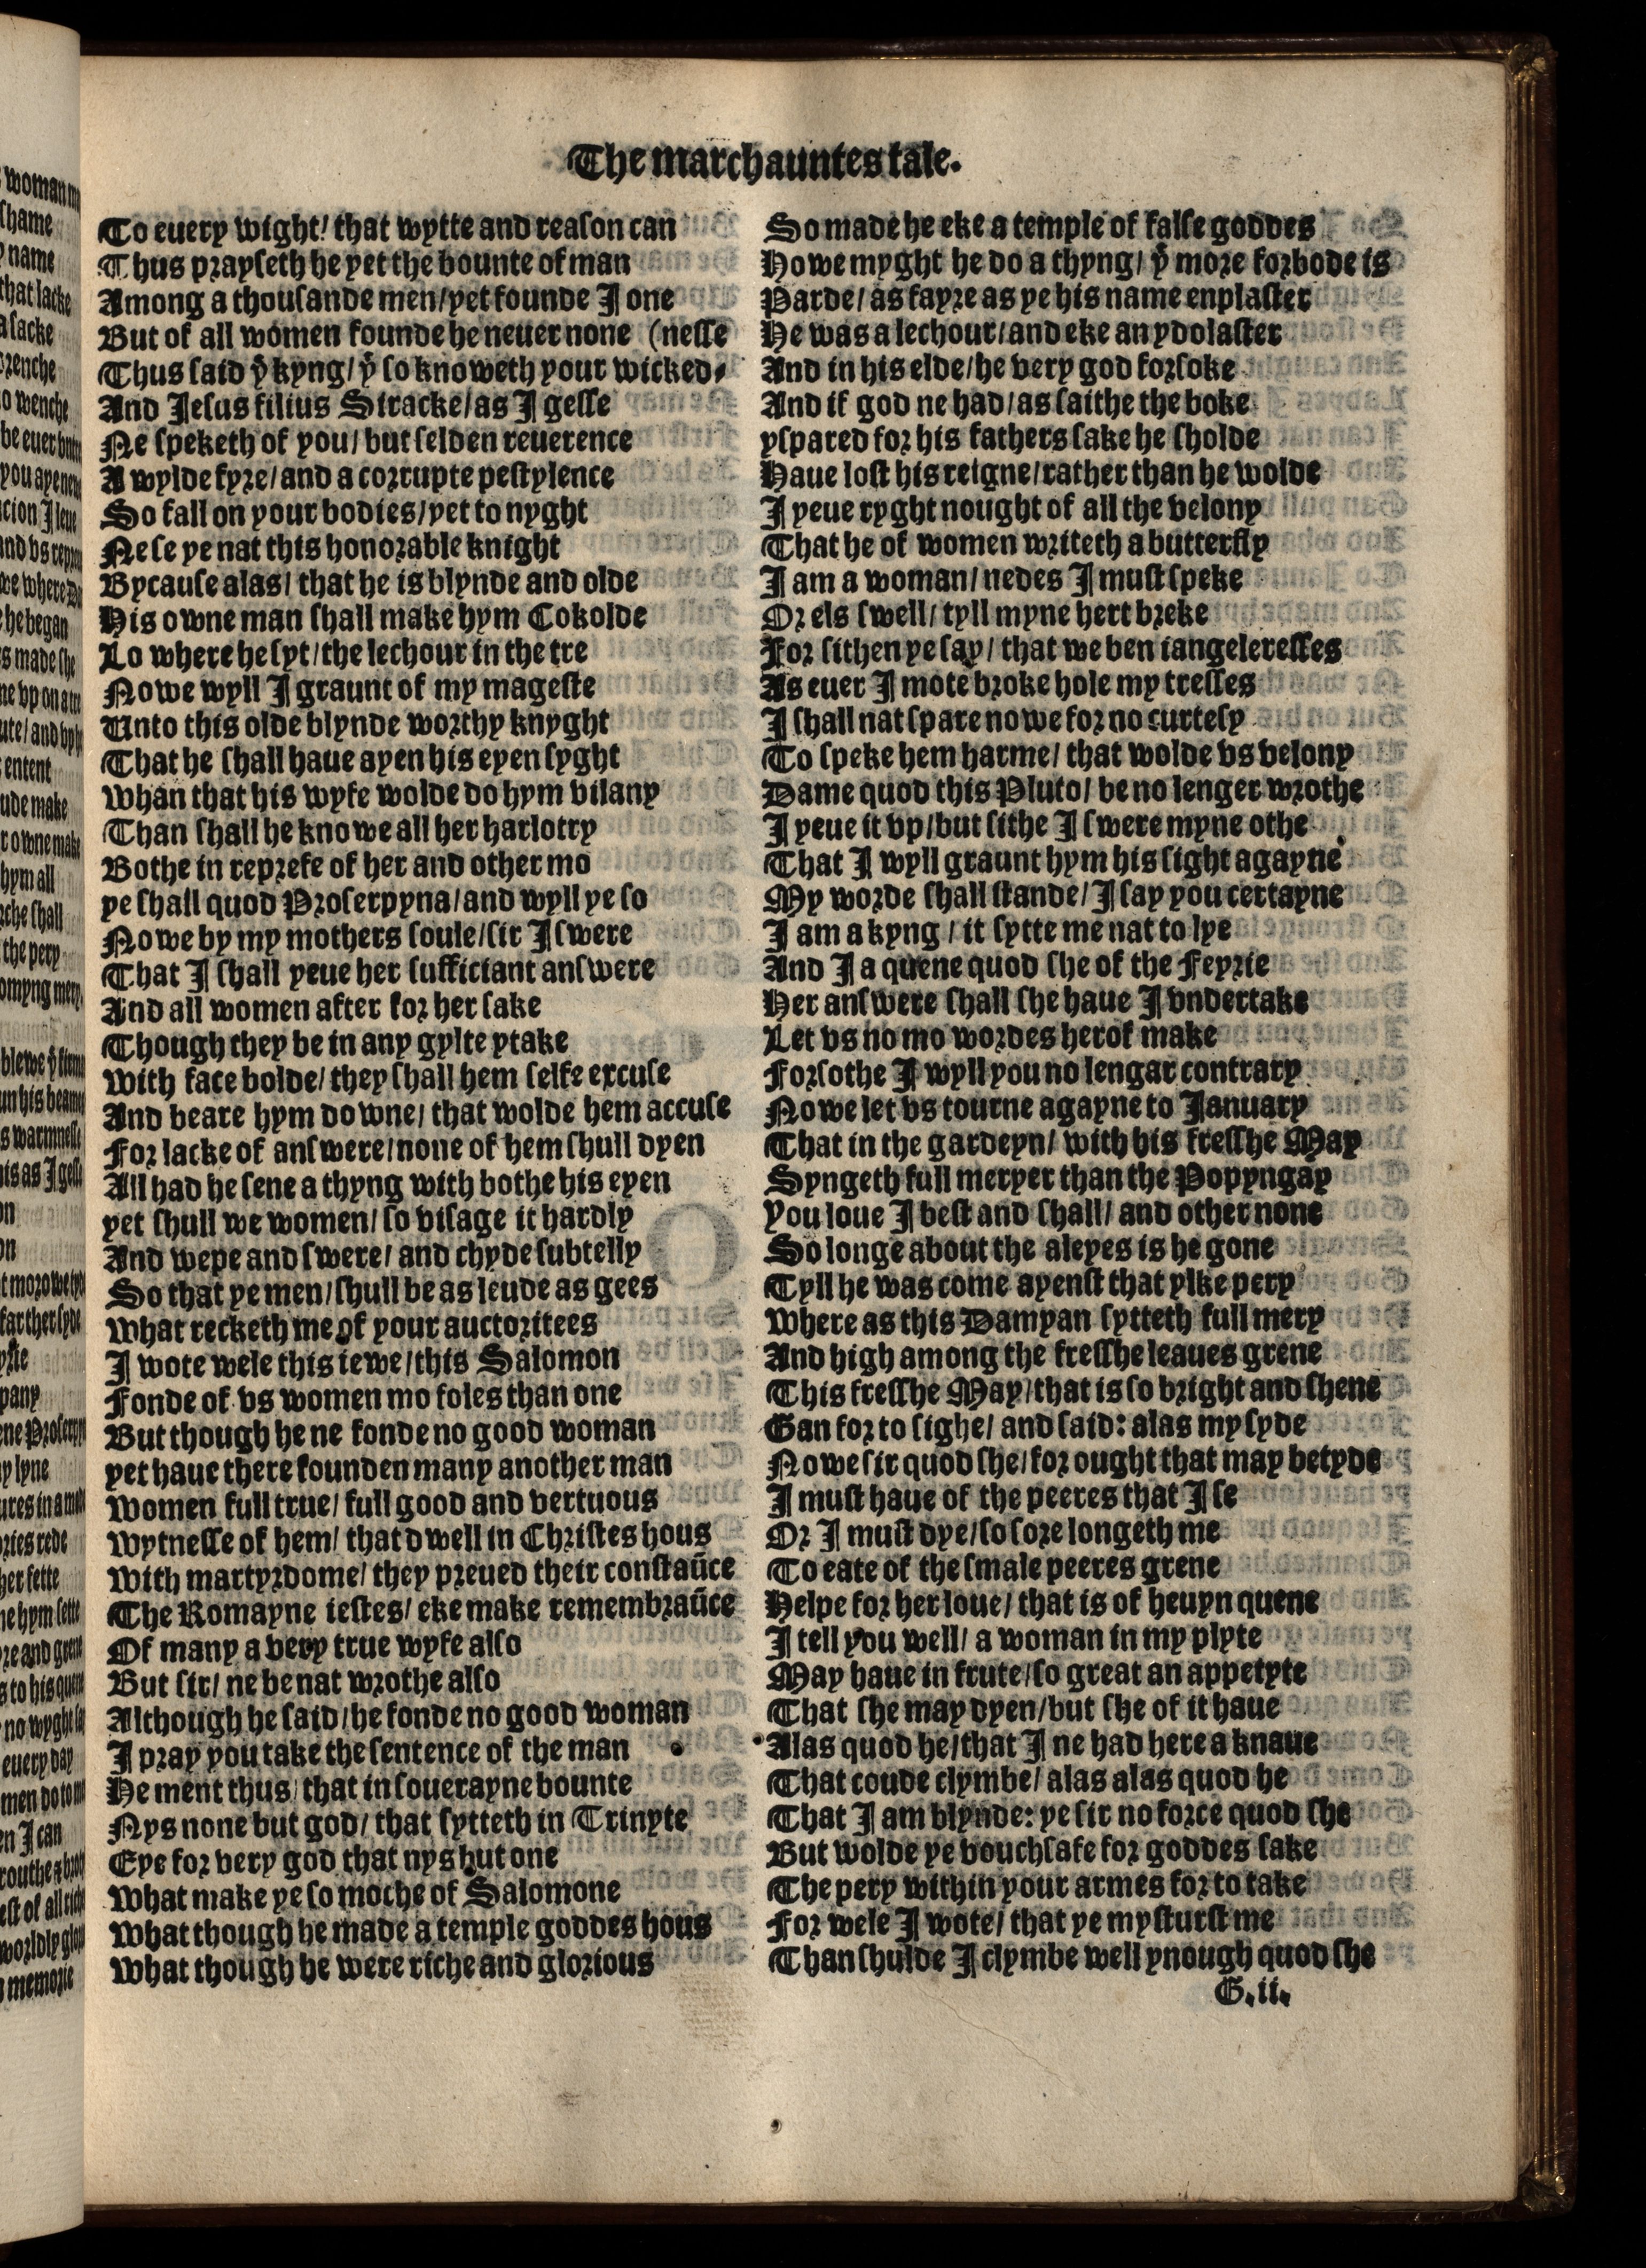 The marchauntes tale.
To euery wight/ that wytte and reaſon can
Thus prayſeth he yet the bounte of man
Among a thouſande men/yet founde I one
But of all women founde he neuer none (neſſe
Thus ſaid yͤ kyng/ yͭ ſo knoweth your wicked⸗
And Jeſus filius Siracke/as I geſſe
Ne ſpeketh of you/ but ſelden reuerence
A wylde fyre/and a corrupte peſtylence
So fall on your bodies/yet to nyght
Ne ſe ye nat this honorable knight
Bycauſe alas/ that he is blynde and olde
His owne man ſhall make hym Cokolde
Lo where he ſyt/the lechour in the tre
Nowe wyll I graunt of my mageſte
Unto this olde blynde worthy knyght
That he ſhall haue ayen his eyen ſyght
Whan that his wyfe wolde do hym vilany
Than ſhall he knowe all her harlotry
Bothe in reprefe of her and other mo
ye ſhall quod Proſerpyna/and wyll ye ſo
Nowe by my mothers ſoule/ſir I ſwere
That I ſhall yeue her ſufficiant anſwere
And all women after for her ſake
Though they be in any gylte ytake
With face bolde/ they ſhall hem ſelfe excuſe
And beare hym downe/ that wolde hem accuſe
For lacke of anſwere/none of hem ſhull dyen
All had he ſene a thyng with bothe his eyen
yet ſhull we women/ ſo viſage it hardly
And wepe and ſwere/ and chyde ſubtelly
So that ye men/ſhull be as leude as gees
What recketh me of your auctoritees
I wote wele this iewe/this Salomon
Fonde of vs women mo foles than one
But though he ne fonde no good woman
yet haue there founden many another man
Women full true/ full good and vertuous
Wytneſſe of hem/ that dwell in Chriſtes hous
With martyrdome/ they preued their conſtaūce
The Romayne ieſtes/ eke make remembraūce
Of many a very true wyfe alſo
But ſir/ ne be nat wrothe alſo
Although he ſaid/he fonde no good woman
I pray you take the ſentence of the man
He ment thus/ that in ſouerayne bounte
Nys none but god/ that ſytteth in Trinyte
Eye for very god that nys but one
What make ye ſo moche of Salomone
What though he made a temple goddes hous
What though he were riche and glorious
So made he eke a temple of falſe goddes
Howe myght he do a thyng/ yͭ more forbode is
Parde/ as fayre as ye his name enplaſter
He was a lechour/and eke an ydolaſter
And in his elde/he very god forſoke
And if god ne had/as ſaithe the boke
yſpared for his fathers ſake he ſholde
Haue loſt his reigne/rather than he wolde
I yeue ryght nought of all the velony
That he of women writeth a butterfly
I am a woman/ nedes I muſt ſpeke
Or els ſwell/ tyll myne hert breke
For ſithen ye ſay/ that we ben iangelereſſes
As euer I mote broke hole my treſſes
I ſhall nat ſpare nowe for no curteſy
To ſpeke hem harme/ that wolde vs velony
Dame quod this Pluto/ be no lenger wrothe
I yeue it vp/but ſithe I ſwere myne othe
That I wyll graunt hym his ſight agayne
My worde ſhall ſtande/I ſay you certayne
I am a kyng / it ſytte me nat to lye
And I a quene quod ſhe of the Feyrie
Her anſwere ſhall ſhe haue I vndertake
Let vs no mo wordes herof make
Forſothe I wyll you no lengar contrary
Nowe let vs tourne agayne to January
That in the gardeyn/ with his freſſhe May
Syngeth full meryer than the Popyngay
You loue I beſt and ſhall/ and other none
So longe about the aleyes is he gone
Tyll he was come ayenſt that ylke pery
Where as this Damyan ſytteth full mery
And high among the freſſhe leaues grene
This freſſhe May/that is ſo bright and ſhene
Gan for to ſighe/ and ſaid: alas my ſyde
Nowe ſir quod ſhe/for ought that may betyde
I muſt haue of the peeres that I ſe
Or I muſt dye/ſo ſore longeth me
To eate of the ſmale peeres grene
Helpe for her loue/ that is of heuyn quene
I tell you well/ a woman in my plyte
May haue in frute/ſo great an appetyte
That ſhe may dyen/but ſhe of it haue
Alas quod he/that I ne had here a knaue
That coude clymbe/ alas alas quod he
That I am blynde: ye ſir no force quod ſhe
But wolde ye vouchſafe for goddes ſake
The pery within your armes for to take
For wele I wote/ that ye myſturſt me
Than ſhulde I clymbe well ynough quod ſhe
G.ii.